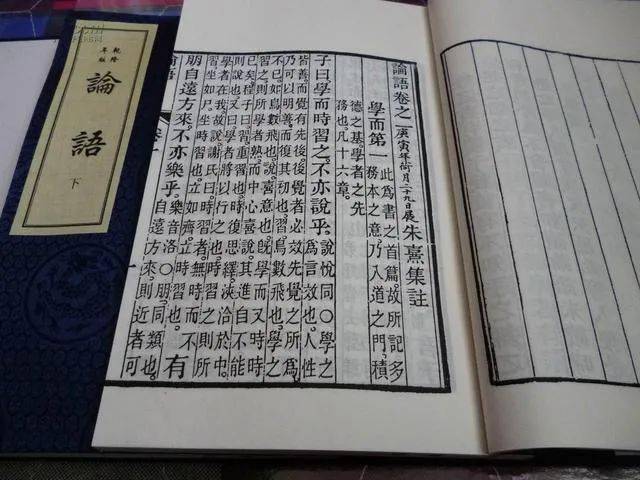 論語卷之一 庚寅年荷月二十九日展 朱熹集註
學而第一 此為書之首篇。故所記多
務本之意。乃入道之門。積
德之基。學者之先
務也。凡十六章。
子曰。學而時習之。不亦說乎。說悅同○學之
為言效也。人性
皆善。而覺有先後。後覺者必效先覺之所為
乃可以明善而復其初也。習鳥數飛也。學之
不已。如鳥數飛也。說喜意也。旣學而又時時
習之。則所學者熟。而中心喜說。其進自不能
已矣。程子曰。習重習也。時復思繹。浹洽於中。
則說也。又曰。學者將以行之也。時習之。則所
學者在我。故說。謝氏曰。時習者。無時而不
習。坐如尸。坐時習也。立如齊。立時習也。有
朋自遠方來。不亦樂乎。樂音洛○朋同類也。
自遠方來。則近者可
論語
乾隆
年版
論語
下